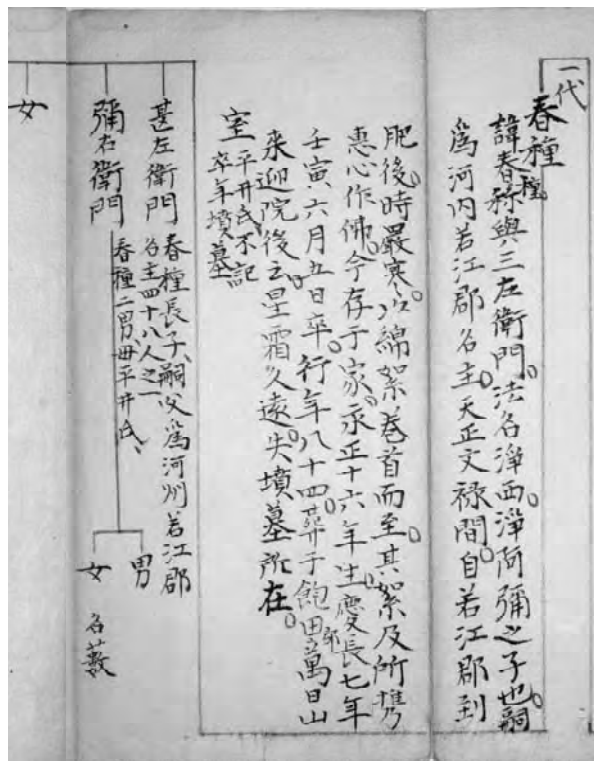 一代
春種
諱春種、稱與三左衛門。法名淨西。淨阿彌之子也。嗣
爲河内若江郡名主。天正文祿間。自若江郡到
肥後。時嚴寒。以綿絮卷首而至。其絮及所携
惠心作佛。今存于家。永正十六年生。慶長七年
壬寅六月五日卒。行年八十四。葬于飽田郡萬日山
來迎院後之。星霜久遠。失墳墓所在。
室
平井氏、不記
卒年墳墓
甚左衛門
春種長子、嗣父爲河州若江郡
名主四十八人之一
彌右衛門
春種二男、母平井氏、
男
女
名藪
女